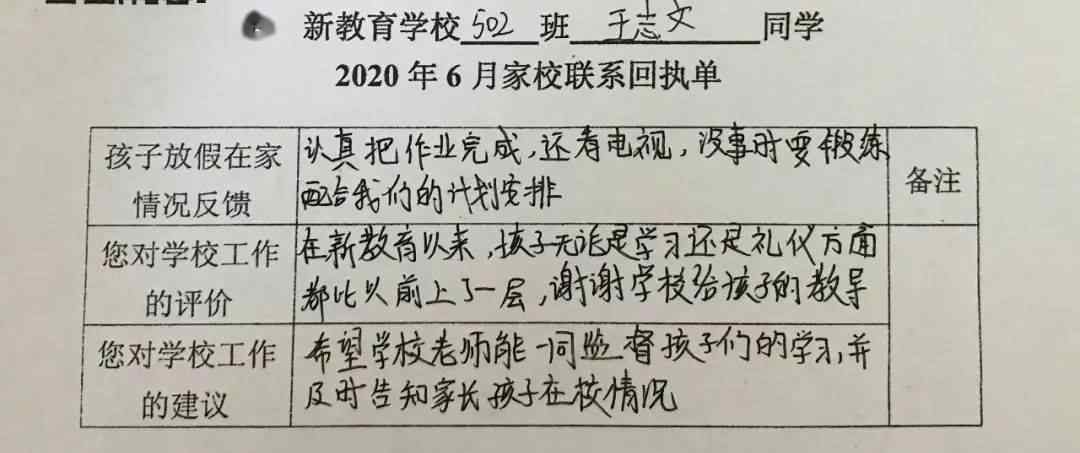 新教育学校502班王志文同学
2020年6月家校联系回执单
孩子放假在家
情况反馈
认真把作业完成,还看电视,没事时要锻练
配合我们的计划安排
备注
您对学校工作
的评价
在新教育以来,孩子无论是学习还是礼仪方面
都比以前上了一层,谢谢学校给孩子的教导
您对学校工作
的建议
希望学校老师能一同监督孩子们的学习,并
及时告知家长孩子在校情况